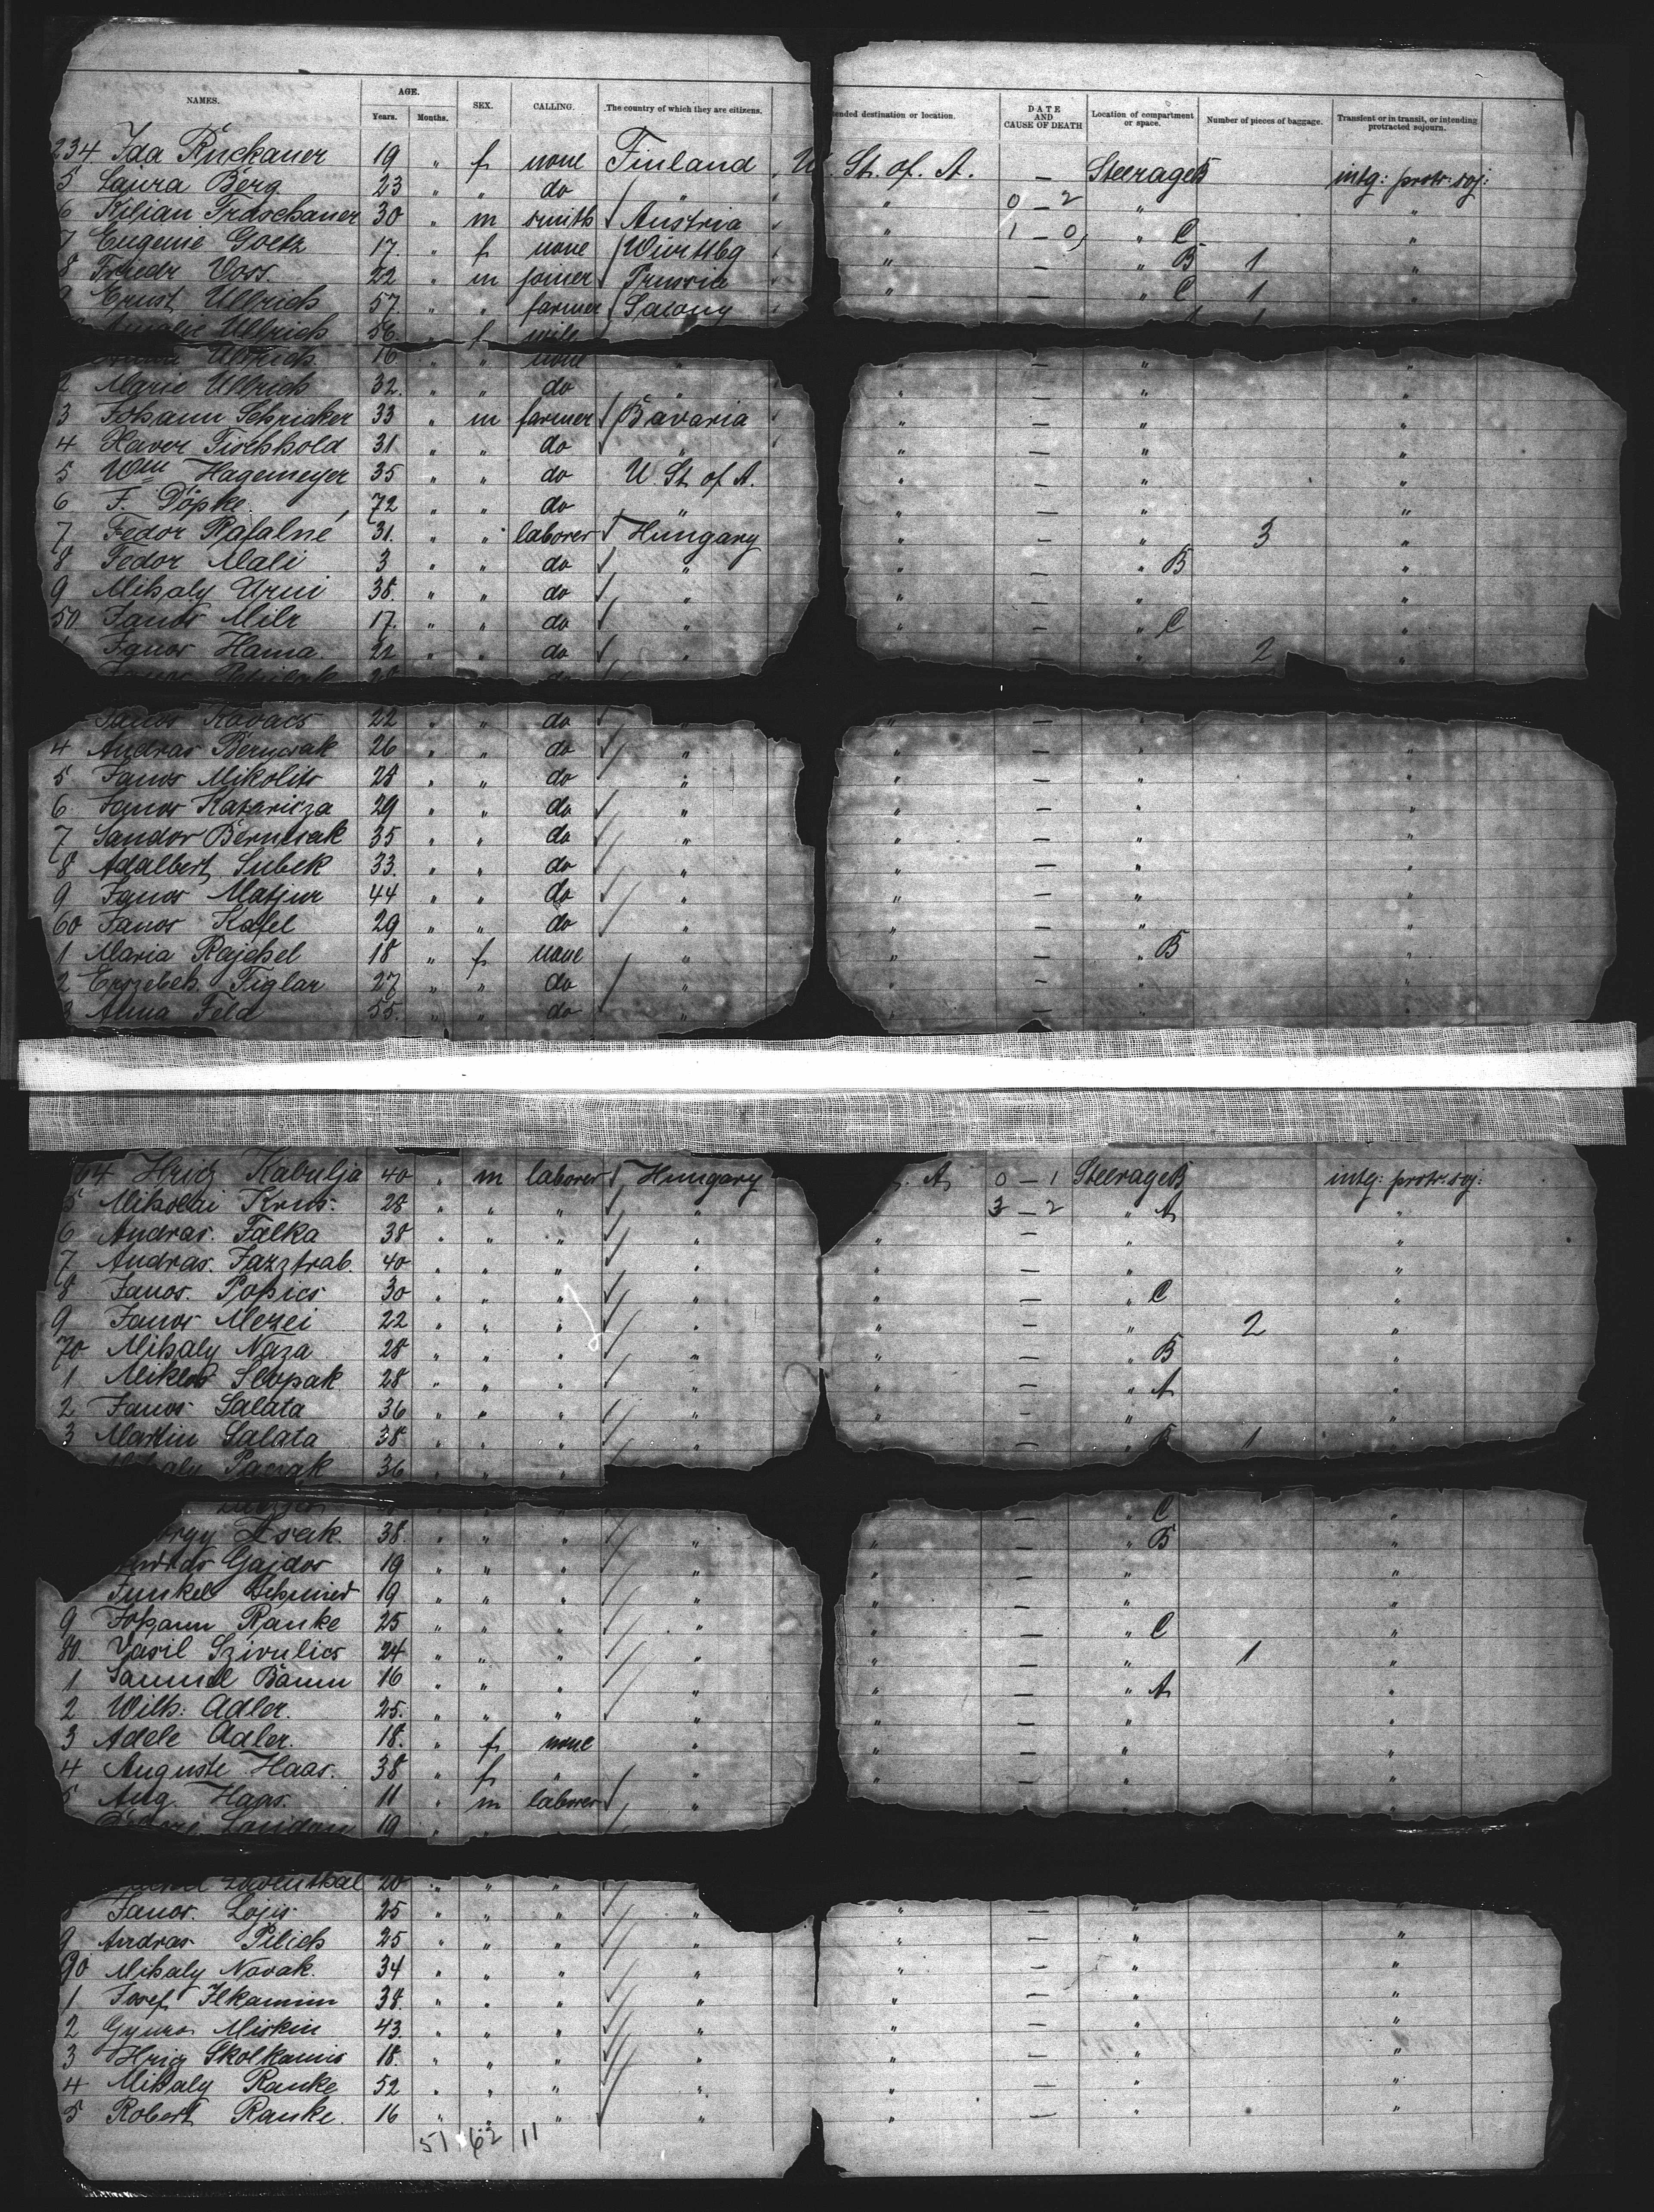 NAMES. AGE. SEX. CALLING. The country of which they are citizens. ended destination or location. DATE AND CAUSE OF DEATH Location of compartment or space. Number of pieces of baggage. Transient or in transit, or intending protracted sojourn.
Years. Months.
234 Ida Ruckauer 19 " f none Finland U. St. of. A. — Steerage B intg: protr. soj:
5 Laura Berg 23 " " do " " 0 — 2 " "
6 Kilian Traschauer 30 " m smith Austria " 1 — 0 " C "
7 Eugenie Goetz 17. " f none Württbg " — " B 1 "
8 Friedr Voss. 22 " m joiner Prussia " — " C 1 "
9 Ernst Ullrich 57. " " farmer Saxony
Amalie Ullrich 56. " f wife
Ullrich 16 " " none " " — " "
2 Marie Ullrich 32. " " do " " — " "
3 Johann Schricker 33 " m farmer Bavaria " — " "
4 Xaver Fischhold 31 " " do " " — " "
5 Wm Hagemeyer 35 " " do U. St. of A. " — " "
6 F. Döpke 72 " " do " " — " "
7 Fedor Rafalné 31. " " laborer Hungary " — " 3 "
8 Fedor Mali 3 " " do " " — " B "
9 Mihaly Urni 38. " " do " " — " "
50 Janos Milr 17. " " do " " — " C "
Janos Hama. 22 " " do " — " 2 "
Janos 28 " " do
Janos Kovacs 22 " " do " " — " "
4 Andras Berncsak 26 " " do " " — " "
5 Janos Mikolits 28 " " do " " — " "
6 Janos Kataricza 29 " " do " " — " "
7 Sandor Berncsak 35 " " do " " — " "
8 Adalbert Subek 33. " " do " " — " "
9 Janos Matjur 44 " " do " " — " "
60 Janos Kafel 29 " " do " " — " "
1 Maria Rajchel 18 " f none " " — " B "
2 Erszebeh. Figlar 27 " " do " " — " "
3 Anna Feld 55. " " do " " — " "
64 Hrig Kabulja 40 " m laborer Hungary . A. 0 — 1 Steerage B intg: protr. soj:
5 Mikolai Krus. 28 " " " " 3 — 2 " A "
6 Andras. Falka 38 " " " " " — " "
7 Andras. Jazztrab. 40 " " " " " — " "
8 Janos. Popics 30 " " " " " — " C "
9 Janos Mezei 22 " " " " " — " 2 "
70 Mihaly Naza 28 " " " " " — " B "
1 Miklos Slopak 28 " " " " " — " A "
2 Janos Salata 36 " " " " " — " "
3 Martin Salata 38 " " " " " — " B 1 "
Mihaly Panak 36 " " "
" — " C "
György Isak 38. " " " " " — " B "
Andras Gajdos 19 " " " " " — " "
Funkel Schmied 19 " " " " " — " "
9 Johann Ranke 25 " " " " " — " C "
80. Vasil Szivulics 24 " " " " " — " 1 "
1 Samuel Baum 16 " " " " " — " A "
2 Wilh: Adler. 25. " " " " " — " "
3 Adele Adler. 18. " f none " " — " "
4 Auguste Haas. 38 " f " " " — " "
5 Aug. Haas. 11 " m laborer "
London 19 " " "
Löwenthal 20 " " "
8 Janos. Lojis 25 " " " " " — " "
9 Andras Pilich 25 " " " " " — " "
90 Mihaly Novak. 34 " " " " " — " "
1 Josef Ilkamim 38. " " " " " — " "
2 Gyura Miskin 43. " " " " " — " "
3 Hrig Skolkamis 18. " " " " " — " "
4 Mihaly Ranke 52 " " " " " — " "
5 Robert Ranke. 16 " " " " " — " "
51 62 11